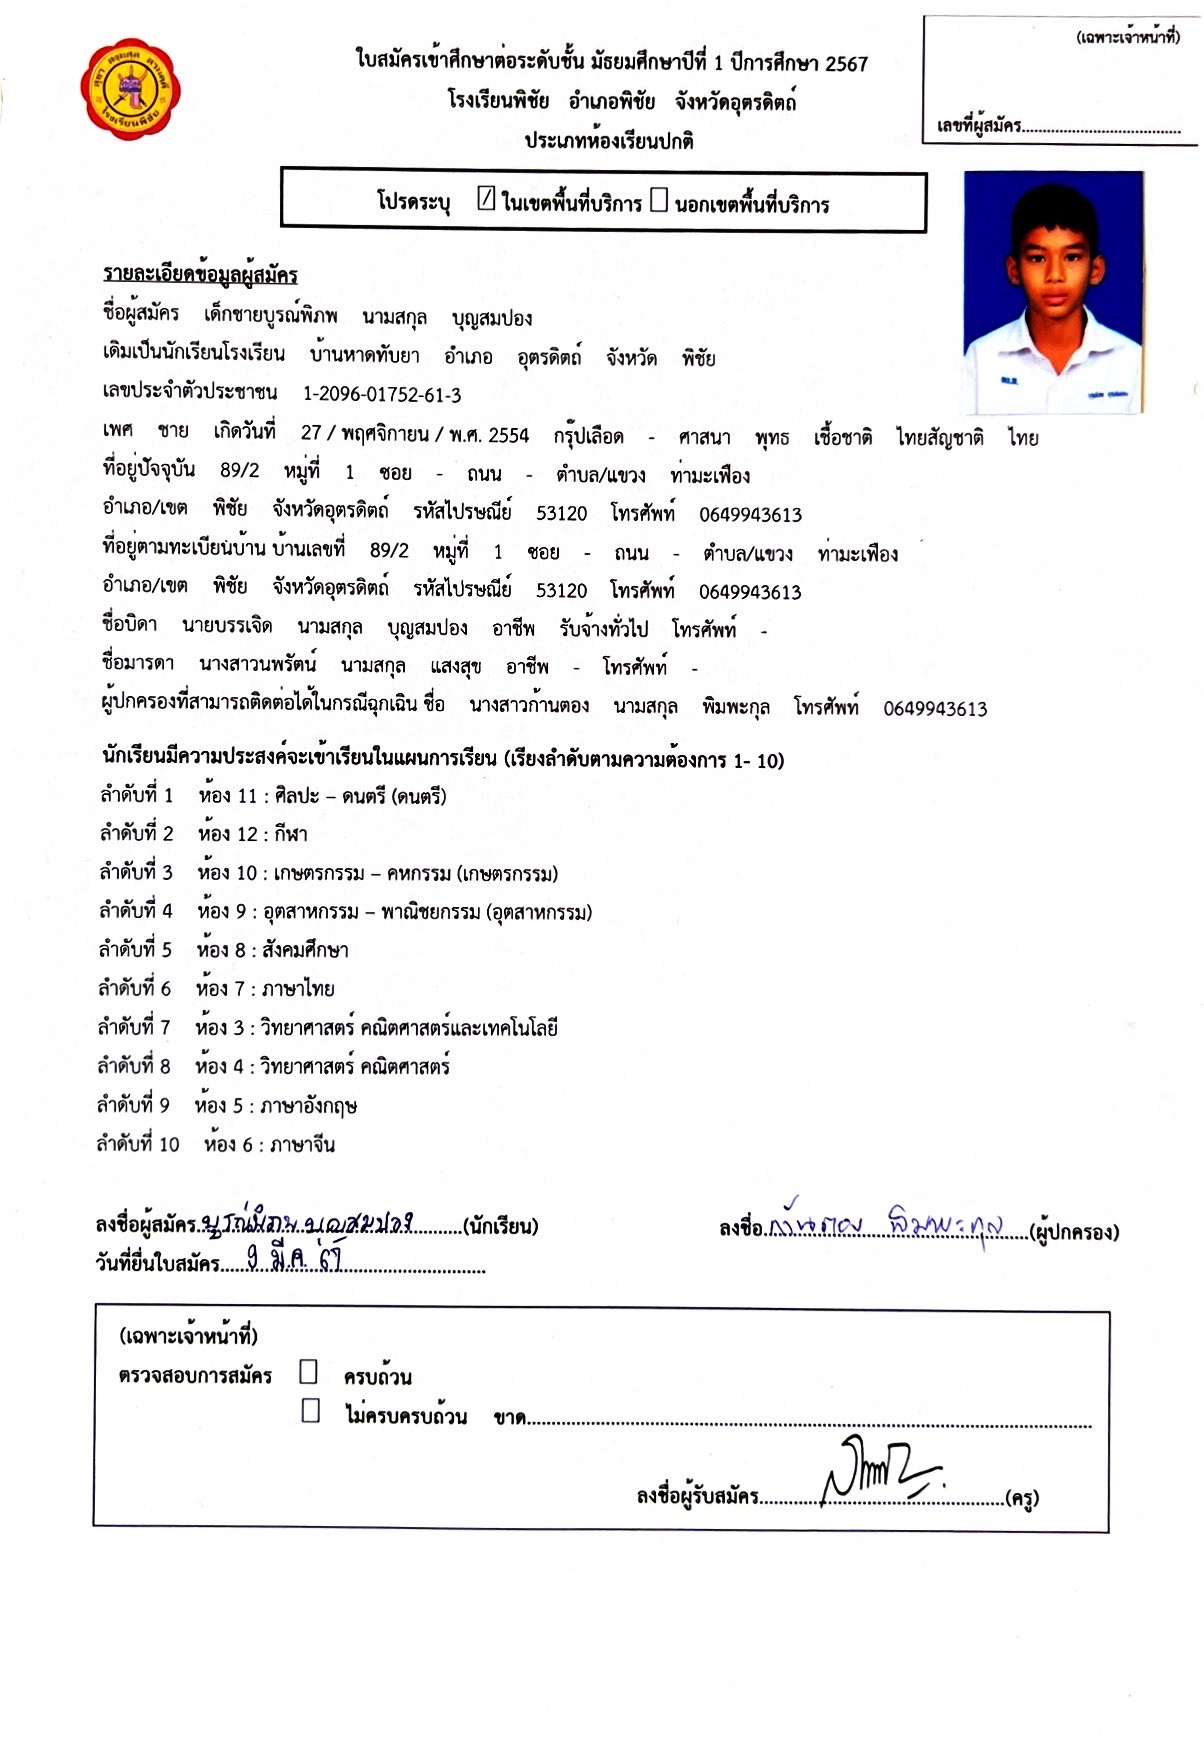 (เฉพาะเจ้าหน้าที่)
ใบสมัครเข้าศึกษาต่อระดับชั้น มัธยมศึกษาปีที่ 1 ปีการศึกษา 2567
โรงเรียนพิชัย อำเภอพิชัย จังหวัดอุตรดิตถ์
เลขที่ผู้สมัคร......................................
ประเภทห้องเรียนปกติ
โรงเรียนพิชัย
โปรดระบุ ☑ ในเขตพื้นที่บริการ ☐ นอกเขตพื้นที่บริการ
รายละเอียดข้อมูลผู้สมัคร
ชื่อผู้สมัคร เด็กชายบูรณ์พิภพ นามสกุล บุญสมปอง
เดิมเป็นนักเรียนโรงเรียน บ้านหาดทับยา อำเภอ อุตรดิตถ์ จังหวัด พิชัย
เลขประจำตัวประชาชน 1-2096-01752-61-3
เพศ ชาย เกิดวันที่ 27 / พฤศจิกายน / พ.ศ. 2554 กรุ๊ปเลือด - ศาสนา พุทธ เชื้อชาติ ไทยสัญชาติ ไทย
ที่อยู่ปัจจุบัน 89/2 หมู่ที่ 1 ซอย - ถนน - ตำบล/แขวง ท่ามะเฟือง
อำเภอ/เขต พิชัย จังหวัดอุตรดิตถ์ รหัสไปรษณีย์ 53120 โทรศัพท์ 0649943613
ที่อยู่ตามทะเบียนบ้าน บ้านเลขที่ 89/2 หมู่ที่ 1 ซอย - ถนน - ตำบล/แขวง ท่ามะเฟือง
อำเภอ/เขต พิชัย จังหวัดอุตรดิตถ์ รหัสไปรษณีย์ 53120 โทรศัพท์ 0649943613
ชื่อบิดา นายบรรเจิด นามสกุล บุญสมปอง อาชีพ รับจ้างทั่วไป โทรศัพท์ -
ชื่อมารดา นางสาวนพรัตน์ นามสกุล แสงสุข อาชีพ - โทรศัพท์ -
ผู้ปกครองที่สามารถติดต่อได้ในกรณีฉุกเฉิน ชื่อ นางสาวก้านตอง นามสกุล พิมพะกุล โทรศัพท์ 0649943613
นักเรียนมีความประสงค์จะเข้าเรียนในแผนการเรียน (เรียงลำดับตามความต้องการ 1- 10)
ลำดับที่ 1 ห้อง 11 : ศิลปะ – ดนตรี (ดนตรี)
ลำดับที่ 2 ห้อง 12 : กีฬา
ลำดับที่ 3 ห้อง 10 : เกษตรกรรม – คหกรรม (เกษตรกรรม)
ลำดับที่ 4 ห้อง 9 : อุตสาหกรรม – พาณิชยกรรม (อุตสาหกรรม)
ลำดับที่ 5 ห้อง 8 : สังคมศึกษา
ลำดับที่ 6 ห้อง 7 : ภาษาไทย
ลำดับที่ 7 ห้อง 3 : วิทยาศาสตร์ คณิตศาสตร์และเทคโนโลยี
ลำดับที่ 8 ห้อง 4 : วิทยาศาสตร์ คณิตศาสตร์
ลำดับที่ 9 ห้อง 5 : ภาษาอังกฤษ
ลำดับที่ 10 ห้อง 6 : ภาษาจีน
ลงชื่อผู้สมัคร บูรณ์พิภพ บุญสมปอง (นักเรียน) ลงชื่อ ก้านตอง พิมพะกุล (ผู้ปกครอง)
วันที่ยื่นใบสมัคร 9 มี.ค. 67
(เฉพาะเจ้าหน้าที่)
ตรวจสอบการสมัคร ☐ ครบถ้วน
☐ ไม่ครบครบถ้วน ขาด......................................
ลงชื่อผู้รับสมัคร......................................(ครู)